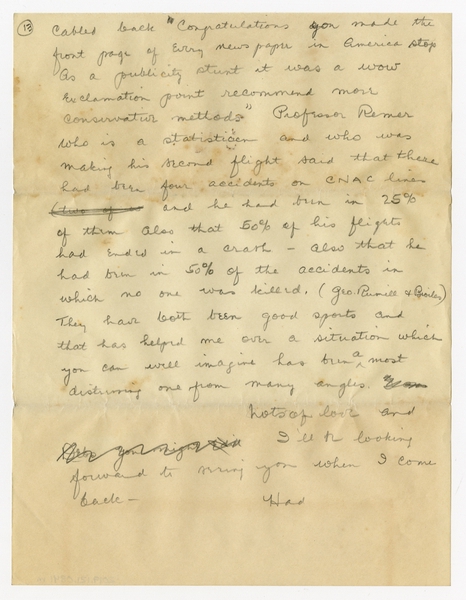 (13) Cabled back "Congratulations you made the
front page of Every newspaper in America stop
As a publicity stunt it was a wow
Exclamation point recommend more
conservative methods" Professor Remer
who is a statisticien and who was
making his second flight said that there
had been four accidents on CNAC lines
(two of and he had been in 25%
of them Also that 50% of his flights
had Ended in a crash – Also that he
had been in 50% of the accidents in
which no one was killed. (Geo.
They have both been good sports and
that has helped me over a situation which
you can well imagine has been a most
distressing one from many angles.
Lots of love and
I'll be looking
forward to seeing you when I come
back – Had